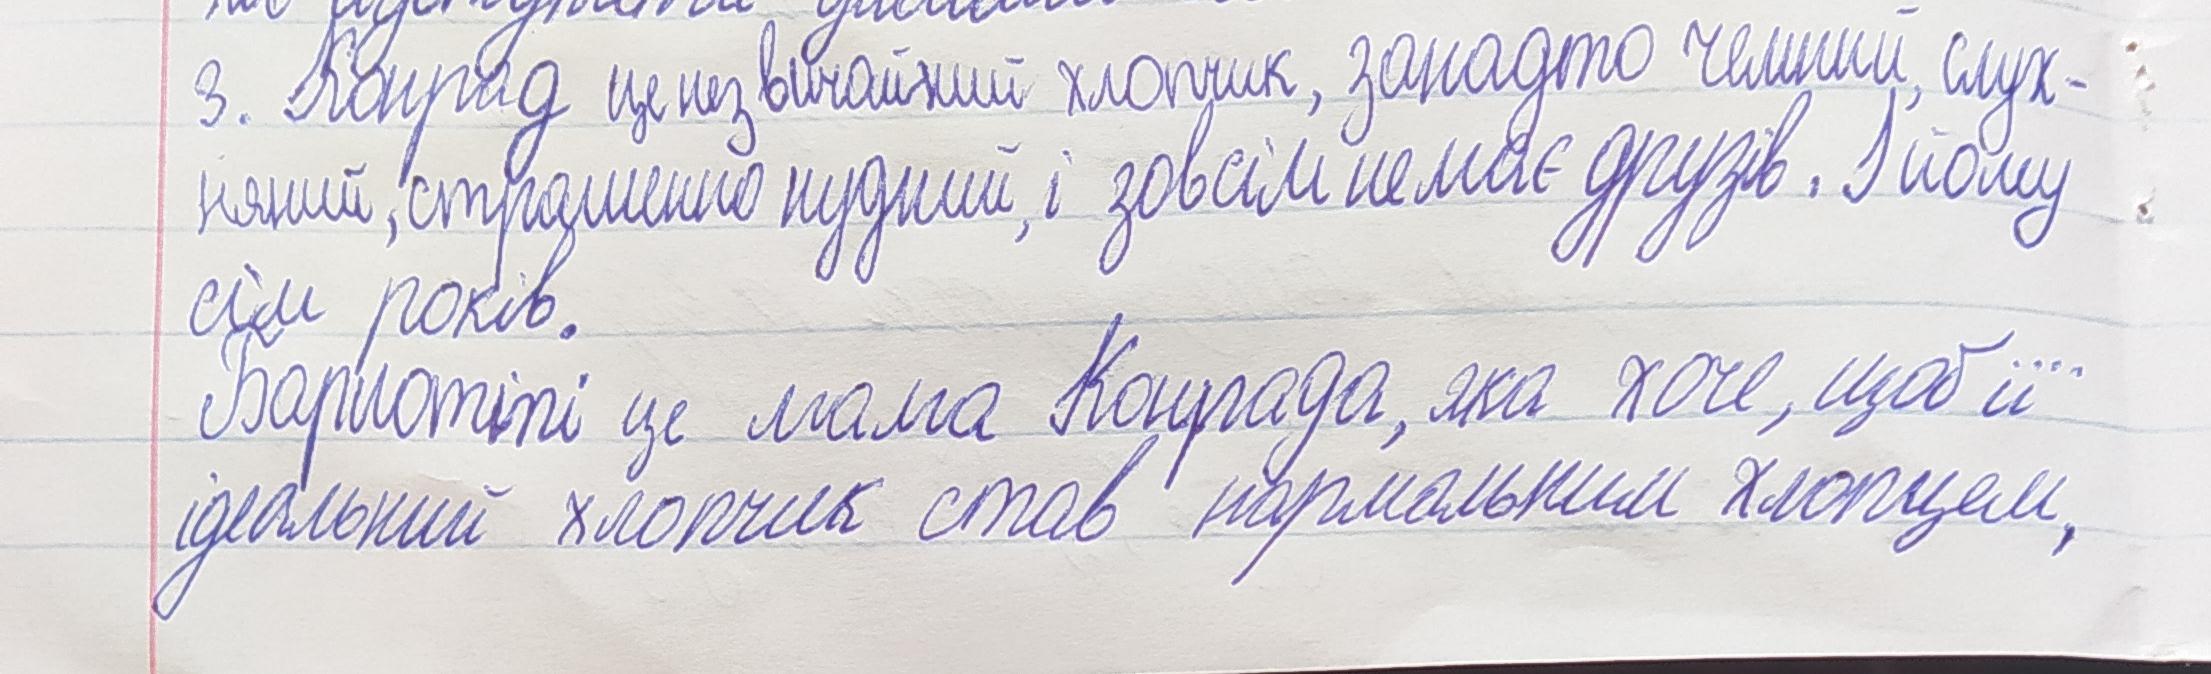 3. Конрад це незвичайний хлопчик, занадто чемний, слух-
няний, страшенно нудний, і зовсім не має друзів. І йому
сім років.
Барлотіпі це мама Конрада, яка хоче, щоб її
ідеальний хлопчик став нормальним хлопцем,